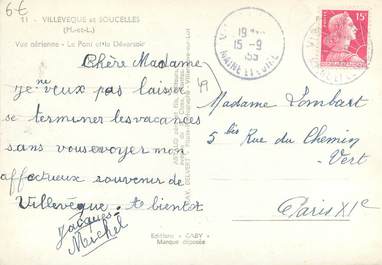 6€
11 - VILLEVEQUE et SOUCELLES
(M.-et-L.)
Vue aérienne - Le Pont et le Déversoir
Chère Madame
je ne veux pas laisser
se terminer les vacances
sans vous envoyer mon
affectueux souvenir de
Villevêque. A bientôt
Jacques-
Michel
49
19
15-9
1955
MAINE ET LOIRE
15F
Madame Lombart
5 bis Rue du Chemin
Vert
Paris XIe
Editions "GABY"
Marque déposée